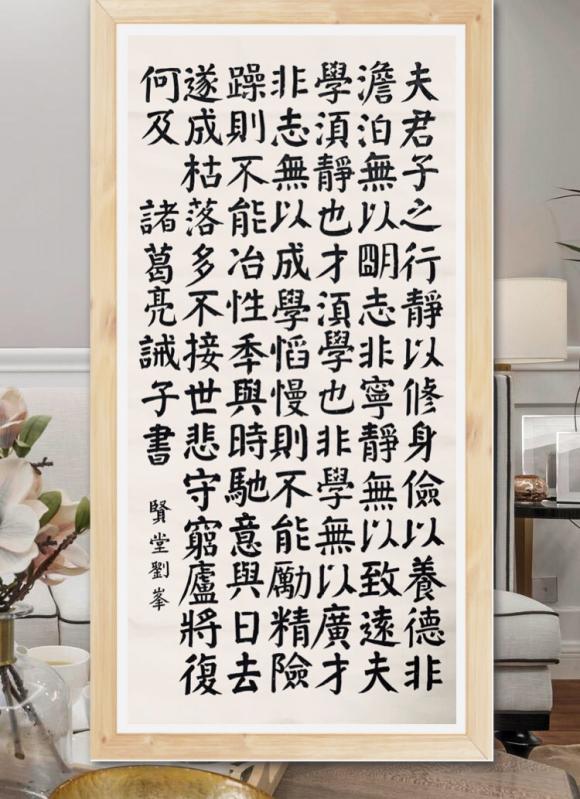 夫君子之行靜以修身儉以養德非
澹泊無以朙志非寧靜無以致遠夫
學湏靜也才湏學也非學無以廣才
非志無以成學慆慢則不能勵精險
躁則不能冶性秊與時馳意與日去
遂成枯落多不接世悲守窮廬將復
何及 諸葛亮誡子書
賢堂劉峯